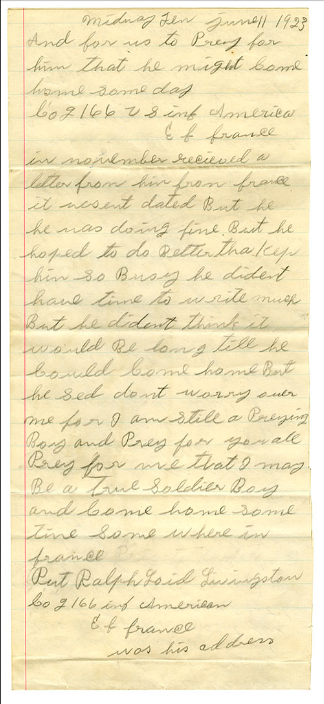 Midway Ten June 11 1923
And for us to Prey for
him that he might Come
home some day
Co G 166 U S inf America
E f france
in november recieved a
letter from him from france
it wesent dated But he
he was doing fine But he
hoped to do Better tha Kep
him So Busy he dident
have time to write much
But he dident think it
would Be long till he
Could Come home But
he Sed dont worry over
me for I am Still a Preying
Boy and Prey for you all
Prey for me that I may
Be a True Soldier Boy
and Come home some
time Some where in
france
Put Ralph Loid Livingston
Co G 166 inf American
E f france
was his address